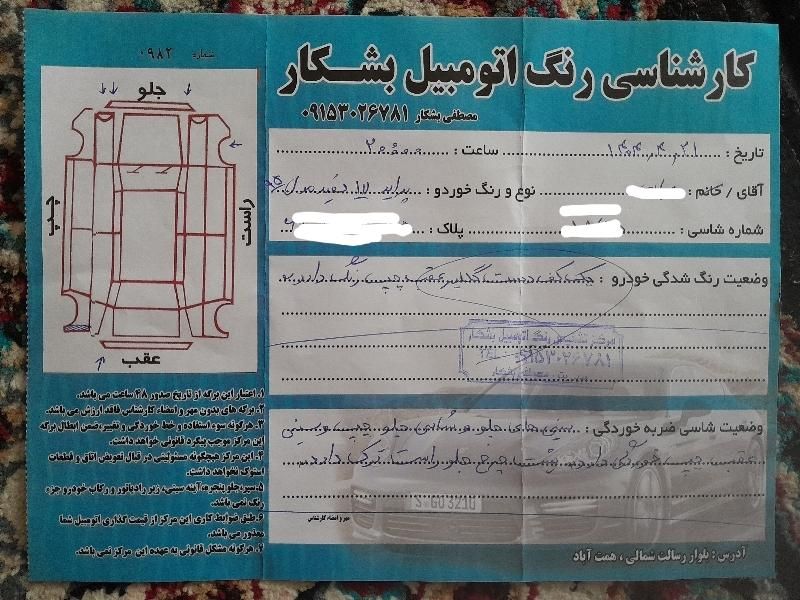 شماره ۰۹۸۲
کارشناسی رنگ اتومبیل بشکار
مصطفی بشکار ۰۹۱۵۳۰۲۶۷۸۱
تاریخ : ۱۴۰۴.۴.۲۱ ساعت :
آقای / خانم : نوع و رنگ خودرو : پراید
شماره شاسی : پلاک :
جلو
راست
چپ
عقب
وضعیت رنگ شدگی خودرو : یک کف دست گلگیر عقب چپ رنگ دارد
مرکز تشخیص رنگ اتومبیل بشکار
۰۹۱۵۳۰۲۶۷۸۱
وضعیت شاسی ضربه خوردگی : سینی های جلو و شاسی جلو چپ و سینی
عقب چپ خوردگی دارد پشت چرخ جلو راست ترک دارد
S·GO 3210
مهر و امضاء کارشناس
آدرس : بلوار رسالت شمالی ، همت آباد
۱. اعتبار این برگه از تاریخ صدور ۴۸ ساعت می باشد.
۲. برگه های بدون مهر و امضاء کارشناس فاقد ارزش می باشد.
۳. هرگونه سوء استفاده و خط خوردگی و تغییر، ضمن ابطال برگه
این مرکز موجب پیگرد قانونی خواهد داشت.
۴. این مرکز هیچگونه مسئولیتی در قبال تعویض اتاق و قطعات
استوک نخواهد داشت.
۵. سپر، جلو پنجره، آینه، سینی، زیر رادیاتور و رکاب خودرو جزء
رنگ نمی باشد.
۶. طبق ضوابط کاری این مرکز از قیمت گذاری اتومبیل شما
معذور می باشد.
۷. هرگونه مشکل قانونی به عهده این مرکز نمی باشد.